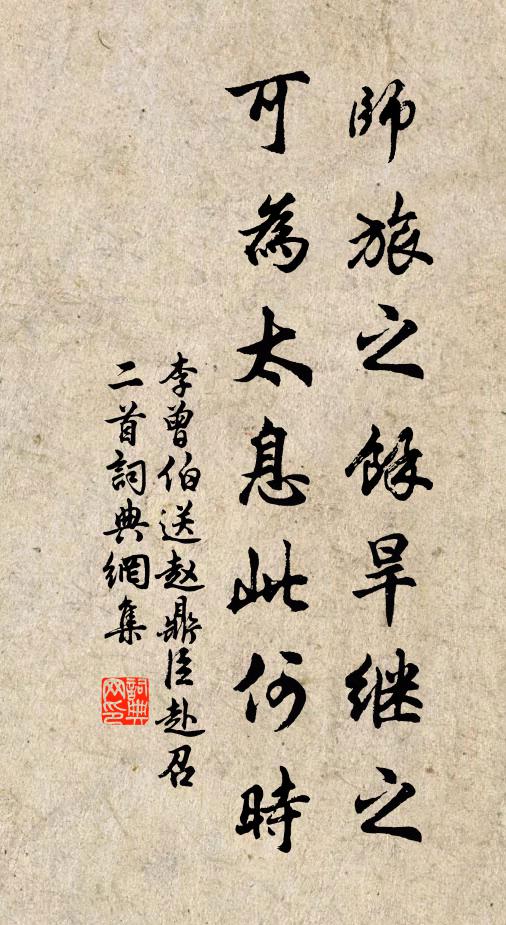 師旅之餘旱继之
可為太息此何時
李曾伯送赵鼎臣赴召
二首詞典網集
詞典
网印